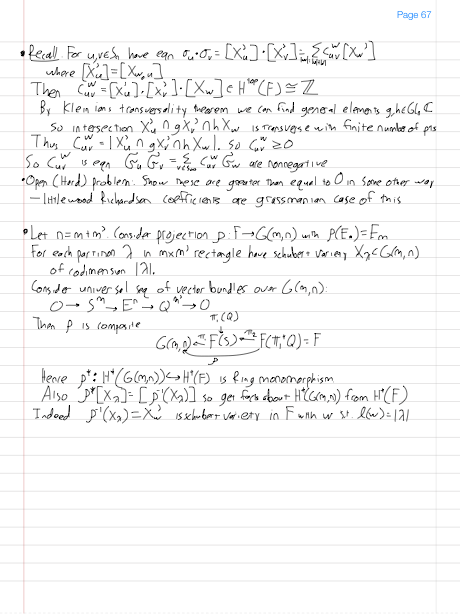 Page 67
• Recall. For u,v∈Sₙ have eqn σᵤ·σᵥ = [X'ᵤ]·[X'ᵥ] = Σ cᵤᵥʷ [X'w]
where [X'ᵤ] = [X_{w₀u}]
Then cᵤᵥʷ = [X'ᵤ]·[X'ᵥ]·[Xw] ∈ Hᵗᵒᵖ(F) ≅ ℤ
By Kleimans transversality theorem we can find general elements g,h∈GLₙℂ
So intersection X'ᵤ ∩ gX'ᵥ ∩ hXw is transverse with finite number of pts
Thus cᵤᵥʷ = |X'ᵤ ∩ gX'ᵥ ∩ hXw|. So cᵤᵥʷ ≥ 0
So cᵤᵥʷ is eqn 𝔖ᵤ𝔖ᵥ = Σ cᵤᵥʷ 𝔖w are nonnegative
• Open (Hard) problem. Show these are greater than equal to 0 in some other way
– littlewood Richardson coefficients are grassmanian case of this
• Let n=m+m'. Consider projection p: F→G(m,n) with p(E.)=Eₘ
For each partition λ in m×m' rectangle have schubert variety X_λ⊂G(m,n)
of codimension |λ|.
Consider universal seq of vector bundles over G(m,n):
0 → Sᵐ → Eⁿ → Qᵐ' → 0
Then p is composite
π₁*(Q)
G(m,n) ←π₁ F(S) ←π₂ F(π₁*Q) = F
p
Hence p*: H*(G(m,n)) ↪ H*(F) is Ring monomorphism
Also p*[X_λ] = [p⁻¹(X_λ)] so get facts about H*(G(m,n)) from H*(F)
Indeed p⁻¹(X_λ) = X'w is schubert variety in F with w s.t. l(w)=|λ|